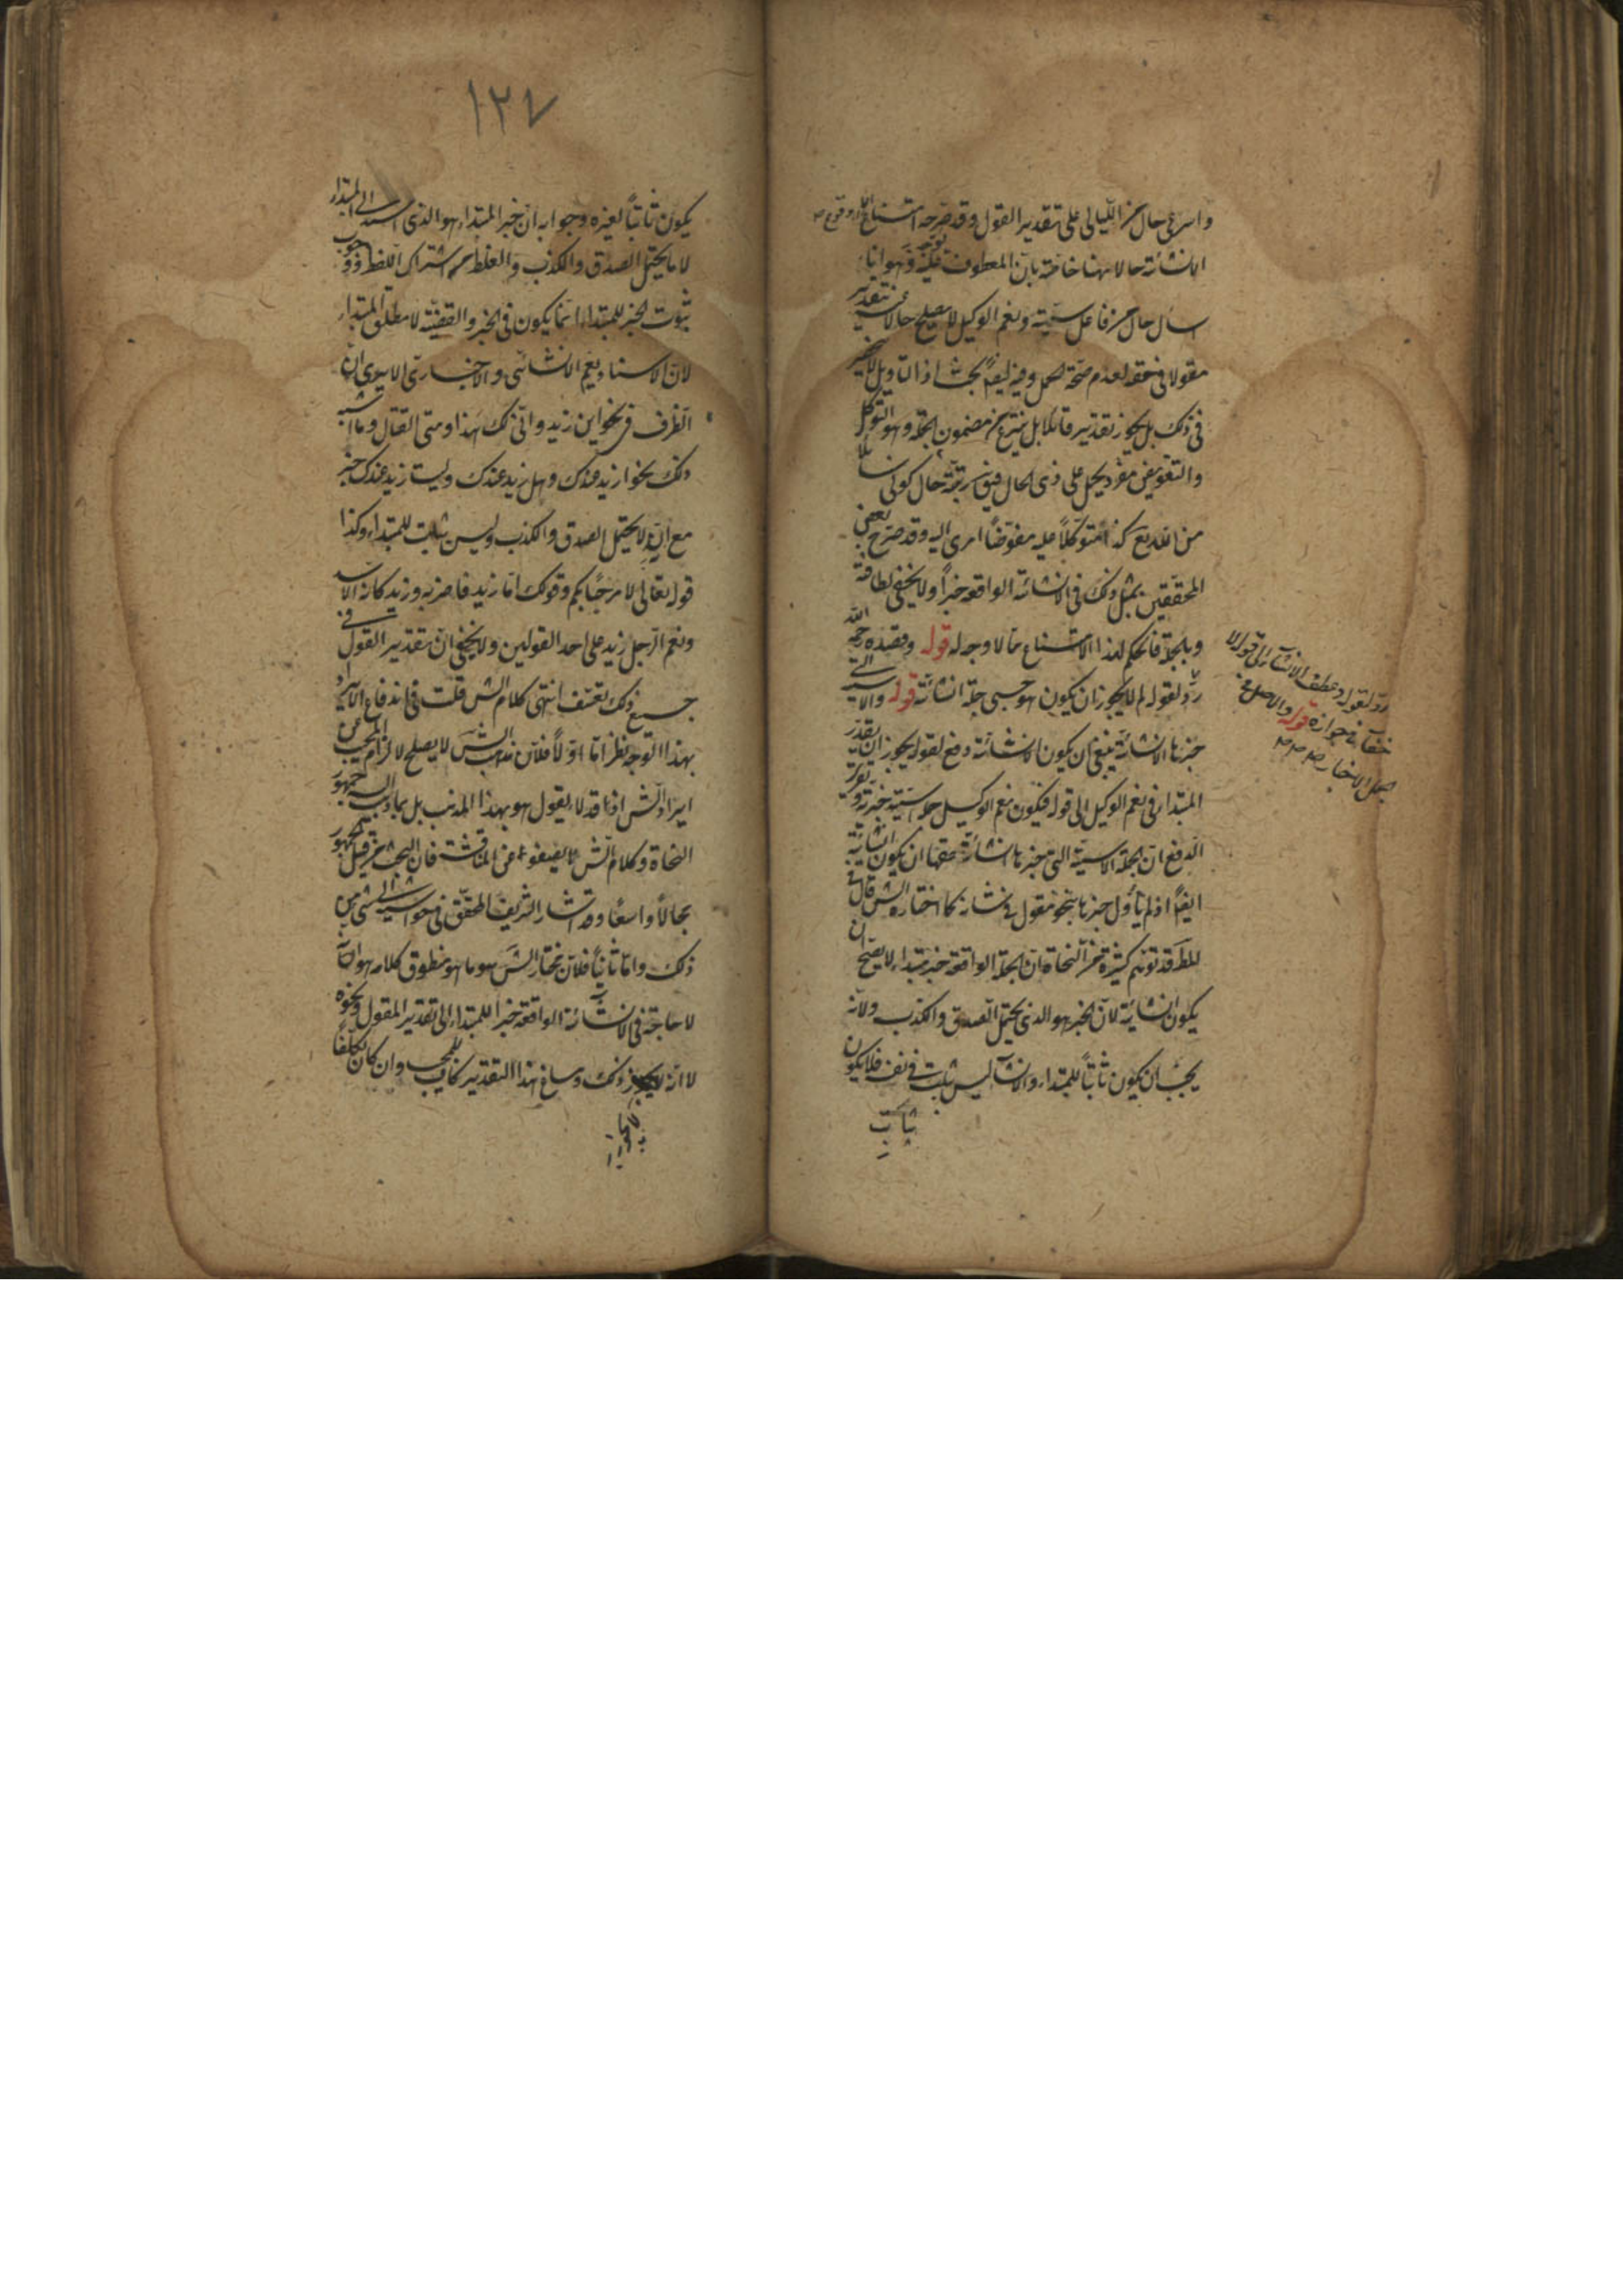 واسرعی حال من اللیالی علی تقدیر القول وقد صرح امتناع
الانشائة حالا ههنا خاصة بان المعطوف علیه وهو انا
اسال حال من فاعل سمیته ونعم الوکیل لا یصلح حالا منه بتقدیر
مقولا فی حقه لعدم صحة الحمل وفیه ایضا بحث اذ التاویل لا ینحصر
فی ذلک بل یجوز تقدیر قائلا بل ینتزع من مضمون الجملة وهو التوکل
والتفویض مفرد یحمل علی ذی الحال فیؤل سمیته حال کونی سائلا
من الله نفع کذا متوکلا علیه مفوضا امری الیه وقد صرح بعض
المحققین بمثل ذلک فی الانشائة الواقعة خبرا ولا یخفی لطافته
وبالجملة فالحکم لهذا الامتناع مما لا وجه له قوله وقصده رحمه الله
رد لقوله لم لا یجوز ان یکون هو حسبی جملة انشائة قوله والاسمیة التی
خبرها الانشائة ینبغی ان یکون انشائة دفع لقوله یجوز ان یقدر
المبتدا فی نعم الوکیل الی قوله فیکون نعم الوکیل جملة اسمیة خبریة وتقریر
الدفع ان الجملة الاسمیة التی خبرها انشائة حقها ان یکون انشائة
ایضا اذ لم یأول خبرها بنحو مقول فی شانه کما اختاره الش قال فی
المط قد توهم کثیر من النحاة ان الجملة الواقعة خبر مبتداء لا یصح ان
یکون انشائیة لان الخبر هو الذی یحتمل الصدق والکذب ولانه
یجب ان یکون ثابتا للمبتداء والانشا لیس بثابت فی نفسه فلا یکون
ثابت
رد لقوله وعطف الانشاء الی قوله لا
خفاء فی جوازه قوله والاصل فی
الجمل الاخبار صح صح صح
۱۲۷
یکون ثابتا لغیره وجوابه ان خبر المبتداء هو الذی اسند الی المبتداء
لا ما یحتمل الصدق والکذب والغلط من اشتراک اللفظ ووجوب
ثبوت الخبر للمبتداء انما یکون فی الخبر والقضیة لا مطلق المبتداء
لان الاسناد یعم الانشائی والاخباری الا یری ان
الظرف فی نحو این زید وانی لک هذا ومتی القتال وما اشبه
ذلک نحو ازید عندک وهل زید عندک ولیت زید عندک خبر
مع انه لا یحتمل الصدق والکذب ولیس بثابت للمبتداء وکذا
قوله تعالی لا مرحبا بکم وقولک اما زید فاضربه وزید کانه الاسد
ونعم الرجل زید علی احد القولین ولا یخفی ان تقدیر القول فی
جمیع ذلک تعسف انتهی کلام الش قلت فی اندفاع الایراد
بهذا التوجه نظر اما اولا فلان مذهب الش لا یصلح لالزام المجیب عن
ایراد الش اذا قد لا یقول هو بهذا المذهب بل بما ذهب الیه جمهور
النحاة وکلام الش لا یصفو عن المناقشة فان للبحث من قبل الجمهور
مجالا واسعا وقد اشار الشریف المحقق فی حواشیه الی شئ من
ذلک واما ثانیا فلان مختار الش هو ما هو منطوق کلامه هو انه
لا حاجة فی الانشائة الواقعة خبرا للمبتداء الی تقدیر المقول ونحوه
لا انه لا یجوز ذلک وساغ هذا التقدیر کاف للمجیب وان کان تکلفا